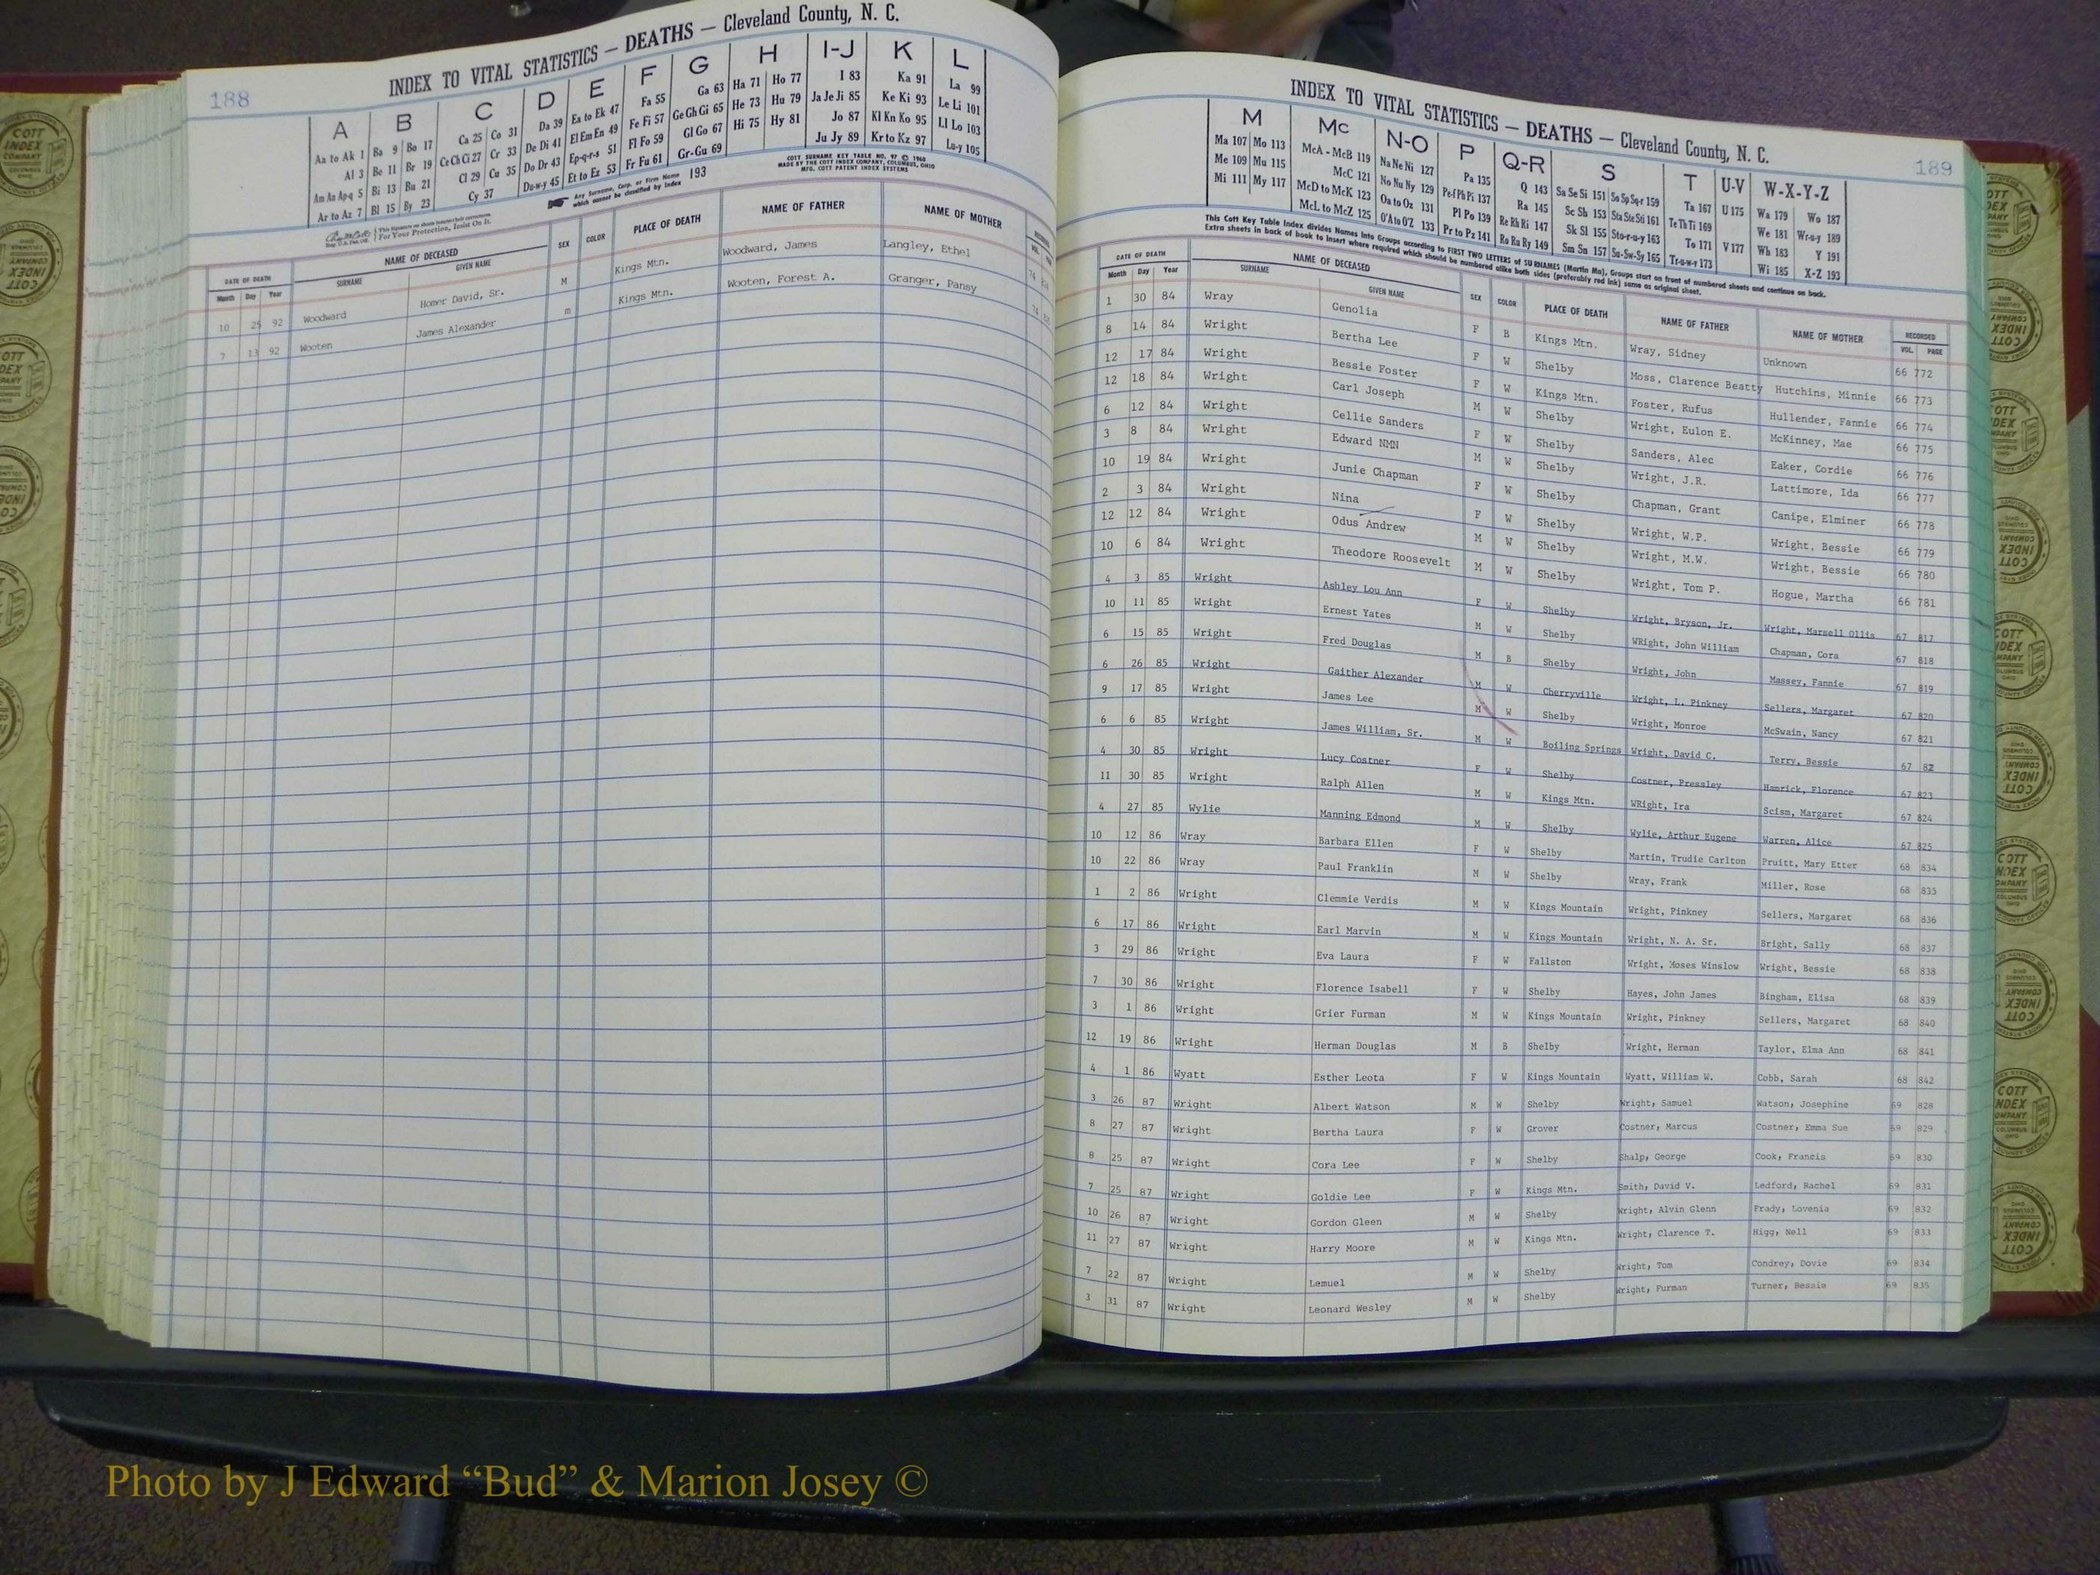 188
INDEX TO VITAL STATISTICS — DEATHS — Cleveland County, N. C.
A B C D E F G H I-J K L
Aa to Ak 1 Ba 9 Bo 17 Ca 25 Co 31 Da 39 Ea to Ek 47 Fa 55 Ga 63 Ha 71 Ho 77 I 83 Ka 91 La 99
Al 3 Be 11 Br 19 Ce Ch Ci 27 Cr 33 De Di 41 El Em En 49 Fe Fi 57 Ge Gh Gi 65 He 73 Hu 79 Ja Je Ji 85 Ke Ki 93 Le Li 101
Am An Ap-q 5 Bi 13 Bu 21 Cl 29 Cu 35 Do Dr 43 Ep-q-r-s 51 Fl Fo 59 Gl Go 67 Hi 75 Hy 81 Jo 87 Kl Kn Ko 95 Ll Lo 103
Ar to Az 7 Bl 15 By 23 Cy 37 Du-w-y 45 Et to Ez 53 Fr Fu 61 Gr-Gu 69 Ju Jy 89 Kr to Kz 97 Lu-y 105
Any Surname, Corp. or Firm Name which cannot be classified by Index 193
COTT SURNAME KEY TABLE NO. 97 © 1960
MADE BY THE COTT INDEX COMPANY, COLUMBUS, OHIO
MFG. COTT PATENT INDEX SYSTEMS
For Your Protection, Insist On It.
DATE OF DEATH NAME OF DECEASED SEX COLOR PLACE OF DEATH NAME OF FATHER NAME OF MOTHER
Month Day Year SURNAME GIVEN NAME
10 25 92 Woodward Homer David, Sr. M Kings Mtn. Woodward, James Langley, Ethel 74
7 13 92 Wooten James Alexander m Kings Mtn. Wooten, Forest A. Granger, Pansy 74
INDEX TO VITAL STATISTICS — DEATHS — Cleveland County, N. C.
189
M Mc N-O P Q-R S T U-V W-X-Y-Z
Ma 107 Mo 113 McA - McB 119 Na Ne Ni 127 Pa 135 Q 143 Sa Se Si 151 So Sp Sq-r 159 Ta 167 U 175 Wa 179 Wo 187
Me 109 Mu 115 McC 121 No Nu Ny 129 Pe-f Ph Pi 137 Ra 145 Sc Sh 153 Sta Ste Sti 161 Te Th Ti 169 We 181 Wr-u-y 189
Mi 111 My 117 McD to McK 123 Oa to Oz 131 Pl Po 139 Re Rh Ri 147 Sk Sl 155 Sto-r-u-y 163 To 171 V 177 Wh 183 Y 191
McL to McZ 125 O'A to O'Z 133 Pr to Pz 141 Ro Ru Ry 149 Sm Sn 157 Su-Sw-Sy 165 Tr-u-w-y 173 Wi 185 X-Z 193
This Cott Key Table Index divides Names into Groups according to FIRST TWO LETTERS of SURNAMES (Martin Ma), Groups start on front of numbered sheets and continue on back.
Extra sheets in back of book to insert where required which should be numbered alike both sides (preferably red ink) same as original sheet.
DATE OF DEATH NAME OF DECEASED SEX COLOR PLACE OF DEATH NAME OF FATHER NAME OF MOTHER RECORDED
Month Day Year SURNAME GIVEN NAME VOL. PAGE
1 30 84 Wray Genolia F B Kings Mtn. Wray, Sidney Unknown 66 772
8 14 84 Wright Bertha Lee F W Shelby Moss, Clarence Beatty Hutchins, Minnie 66 773
12 17 84 Wright Bessie Foster F W Kings Mtn. Foster, Rufus Hullender, Fannie 66 774
12 18 84 Wright Carl Joseph M W Shelby Wright, Eulon E. McKinney, Mae 66 775
6 12 84 Wright Cellie Sanders F W Shelby Sanders, Alec Eaker, Cordie 66 776
3 8 84 Wright Edward NMN M W Shelby Wright, J.R. Lattimore, Ida 66 777
10 19 84 Wright Junie Chapman F W Shelby Chapman, Grant Canipe, Elminer 66 778
2 3 84 Wright Nina F W Shelby Wright, W.P. Wright, Bessie 66 779
12 12 84 Wright Odus Andrew M W Shelby Wright, M.W. Wright, Bessie 66 780
10 6 84 Wright Theodore Roosevelt M W Shelby Wright, Tom P. Hogue, Martha 66 781
4 3 85 Wright Ashley Lou Ann F W Shelby Wright, Bryson, Jr. Wright, Marsell Ollis 67 817
10 11 85 Wright Ernest Yates M W Shelby WRight, John William Chapman, Cora 67 818
6 15 85 Wright Fred Douglas M B Shelby Wright, John Massey, Fannie 67 819
6 26 85 Wright Gaither Alexander M W Cherryville Wright, L. Pinkney Sellers, Margaret 67 820
9 17 85 Wright James Lee M W Shelby Wright, Monroe McSwain, Nancy 67 821
6 6 85 Wright James William, Sr. M W Boiling Springs Wright, David C. Terry, Bessie 67 82
4 30 85 Wright Lucy Costner F W Shelby Costner, Pressley Hamrick, Florence 67 823
11 30 85 Wright Ralph Allen M W Kings Mtn. WRight, Ira Scism, Margaret 67 824
4 27 85 Wylie Manning Edmond M W Shelby Wylie, Arthur Eugene Warren, Alice 67 825
10 12 86 Wray Barbara Ellen F W Shelby Martin, Trudie Carlton Pruitt, Mary Etter 68 834
10 22 86 Wray Paul Franklin M W Shelby Wray, Frank Miller, Rose 68 835
1 2 86 Wright Clemmie Verdis M W Kings Mountain Wright, Pinkney Sellers, Margaret 68 836
6 17 86 Wright Earl Marvin M W Kings Mountain Wright, N. A. Sr. Bright, Sally 68 837
3 29 86 Wright Eva Laura F W Fallston Wright, Moses Winslow Wright, Bessie 68 838
7 30 86 Wright Florence Isabell F W Shelby Hayes, John James Bingham, Elisa 68 839
3 1 86 Wright Grier Furman M W Kings Mountain Wright, Pinkney Sellers, Margaret 68 840
12 19 86 Wright Herman Douglas M B Shelby Wright, Herman Taylor, Elma Ann 68 841
4 1 86 Wyatt Esther Leota F W Kings Mountain Wyatt, William W. Cobb, Sarah 68 842
3 26 87 Wright Albert Watson M W Shelby Wright, Samuel Watson, Josephine 69 828
8 27 87 Wright Bertha Laura F W Grover Costner, Marcus Costner, Emma Sue 69 829
8 25 87 Wright Cora Lee F W Shelby Shalp, George Cook, Francis 69 830
7 25 87 Wright Goldie Lee F W Kings Mtn. Smith, David V. Ledford, Rachel 69 831
10 26 87 Wright Gordon Gleen M W Shelby Wright, Alvin Glenn Frady, Lovenia 69 832
11 27 87 Wright Harry Moore M W Kings Mtn. Wright, Clarence T. Higg, Nell 69 833
7 22 87 Wright Lemuel M W Shelby Wright, Tom Condrey, Dovie 69 834
3 31 87 Wright Leonard Wesley M W Shelby Wright, Furman Turner, Bessie 69 835
Photo by J Edward “Bud” & Marion Josey ©